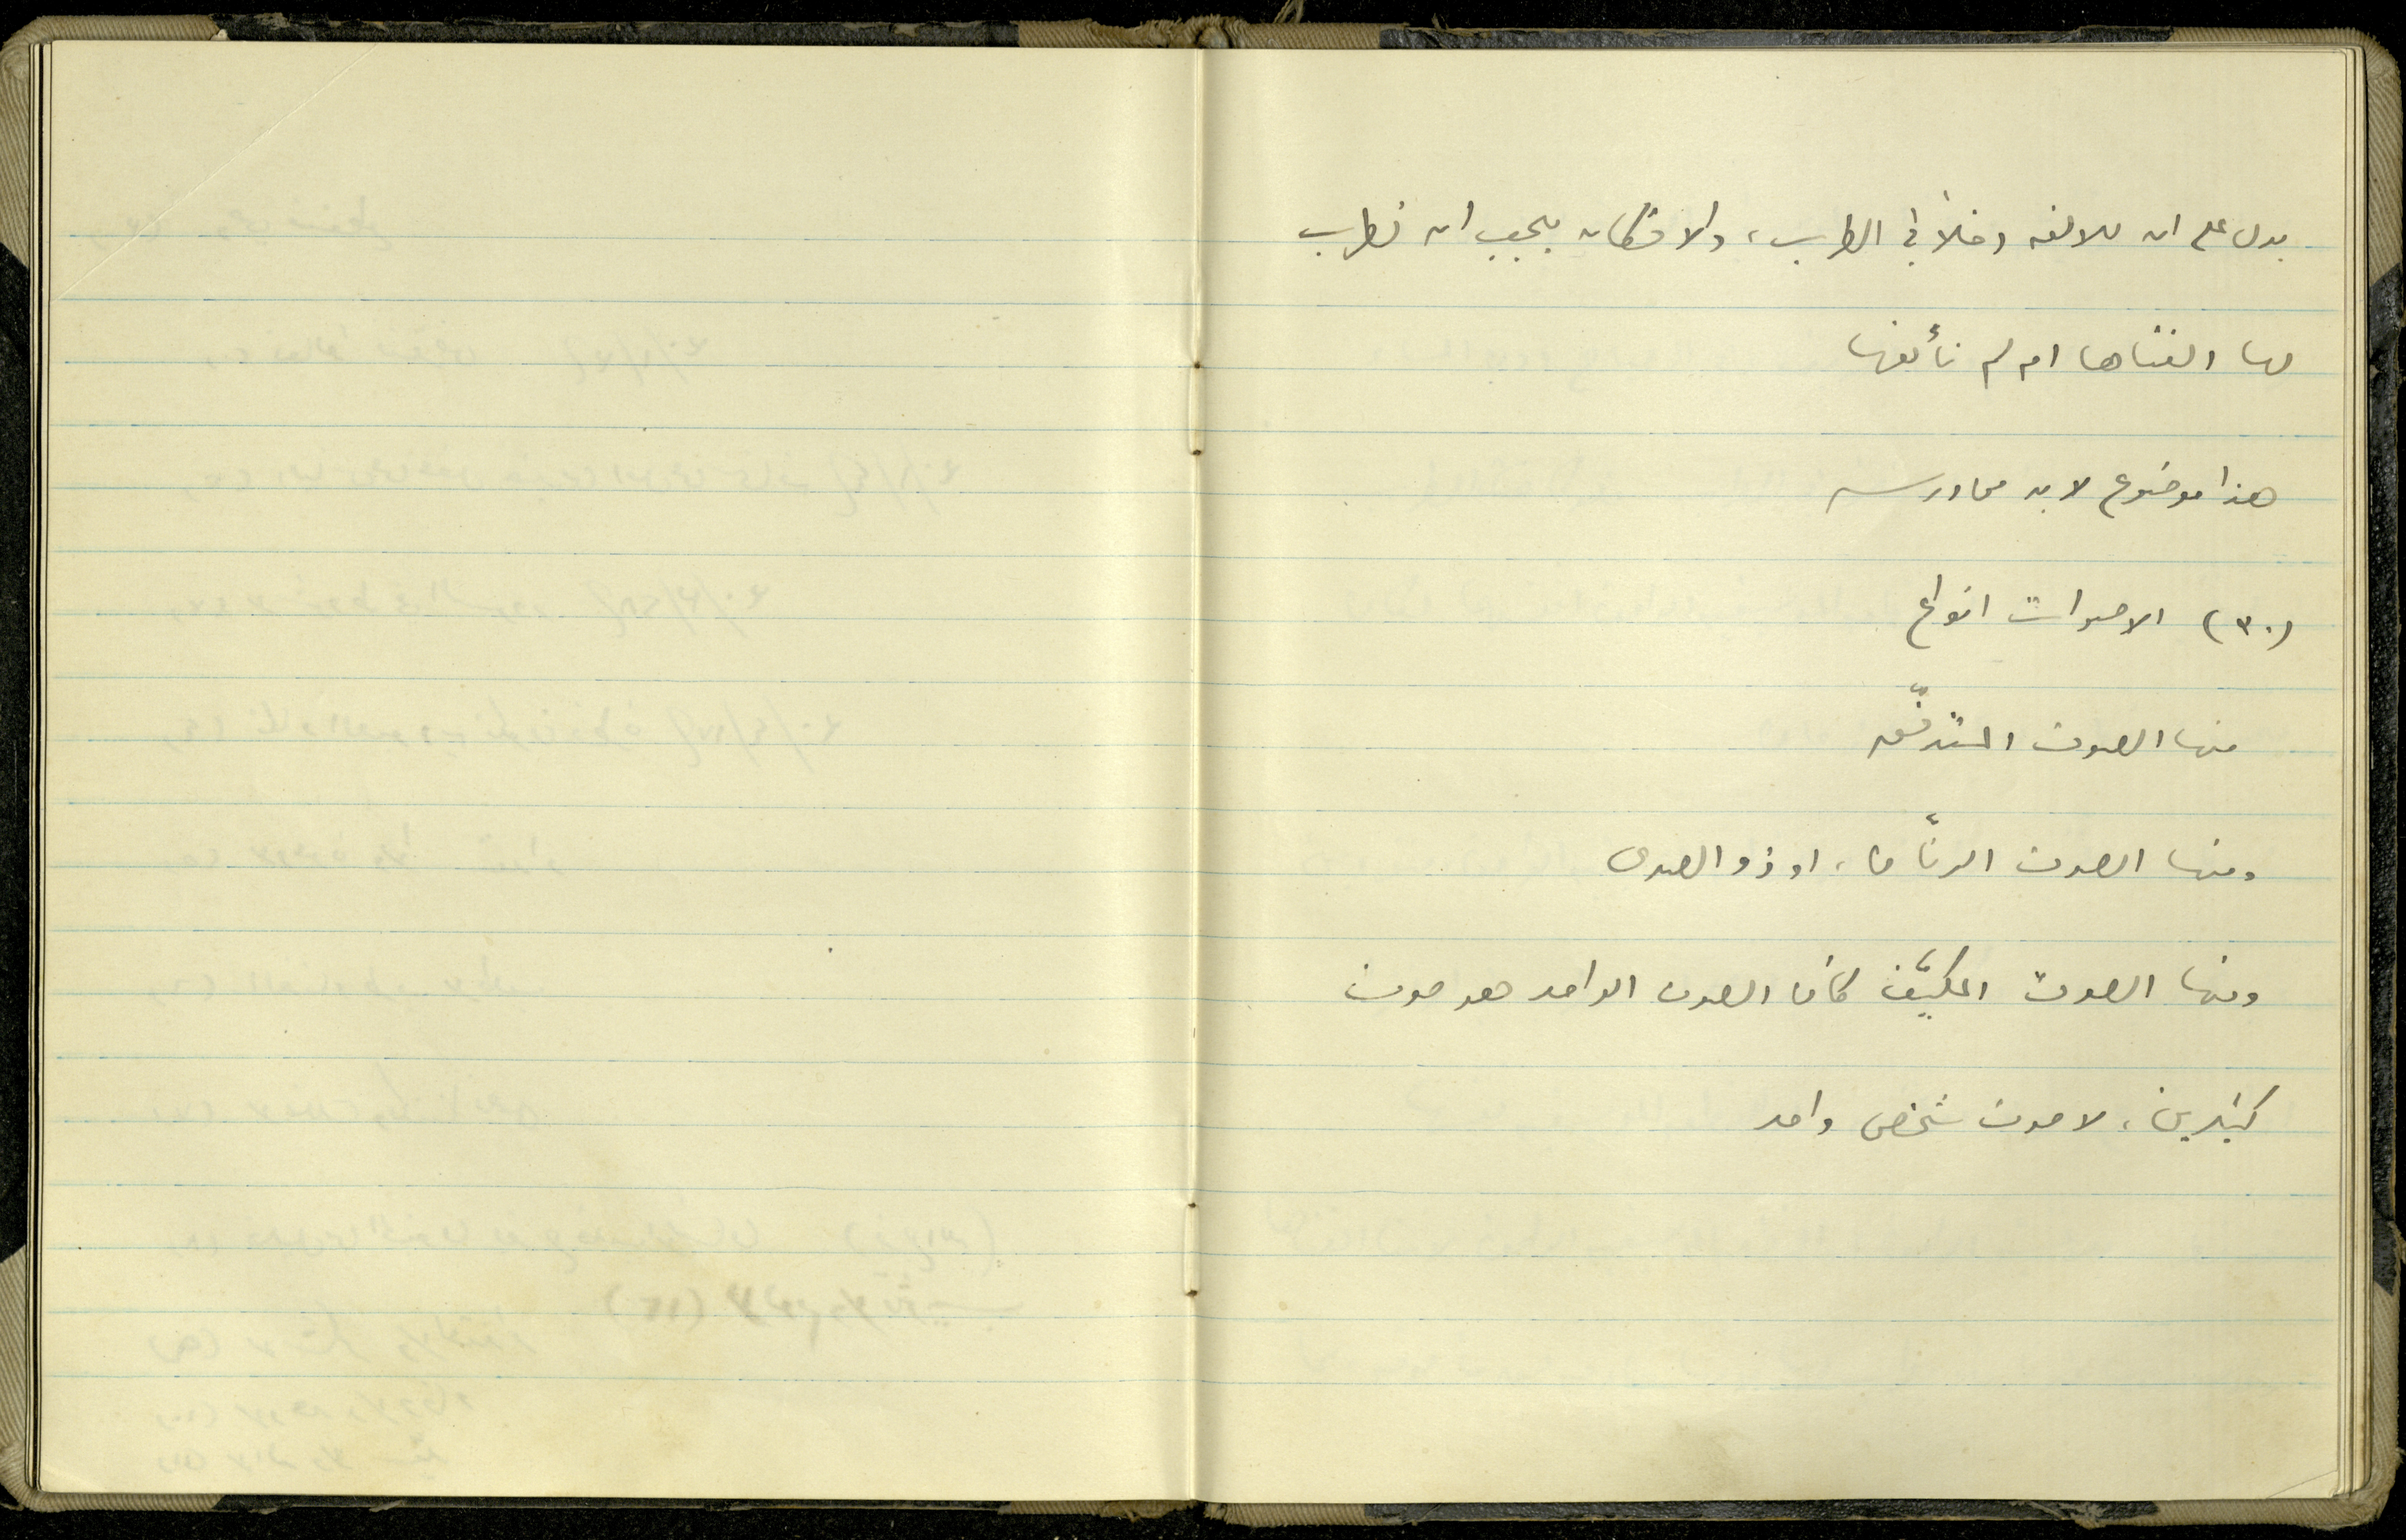 يدل على ان للالفه دخلاً في الطرب، والا فكان يجب ان نطرب
لها الفناها ام لم نألفها
هذا موضوع لا بد من درسه
(٣٠) الاصوات انواع
منها الصوت المتدفّق
ومنها الصوت الرنّان، او ذو الصدى
ومنها الصوت المكيّف كأن الصوت الواحد هو صوت
كثيرين، لا صوت شخص واحد